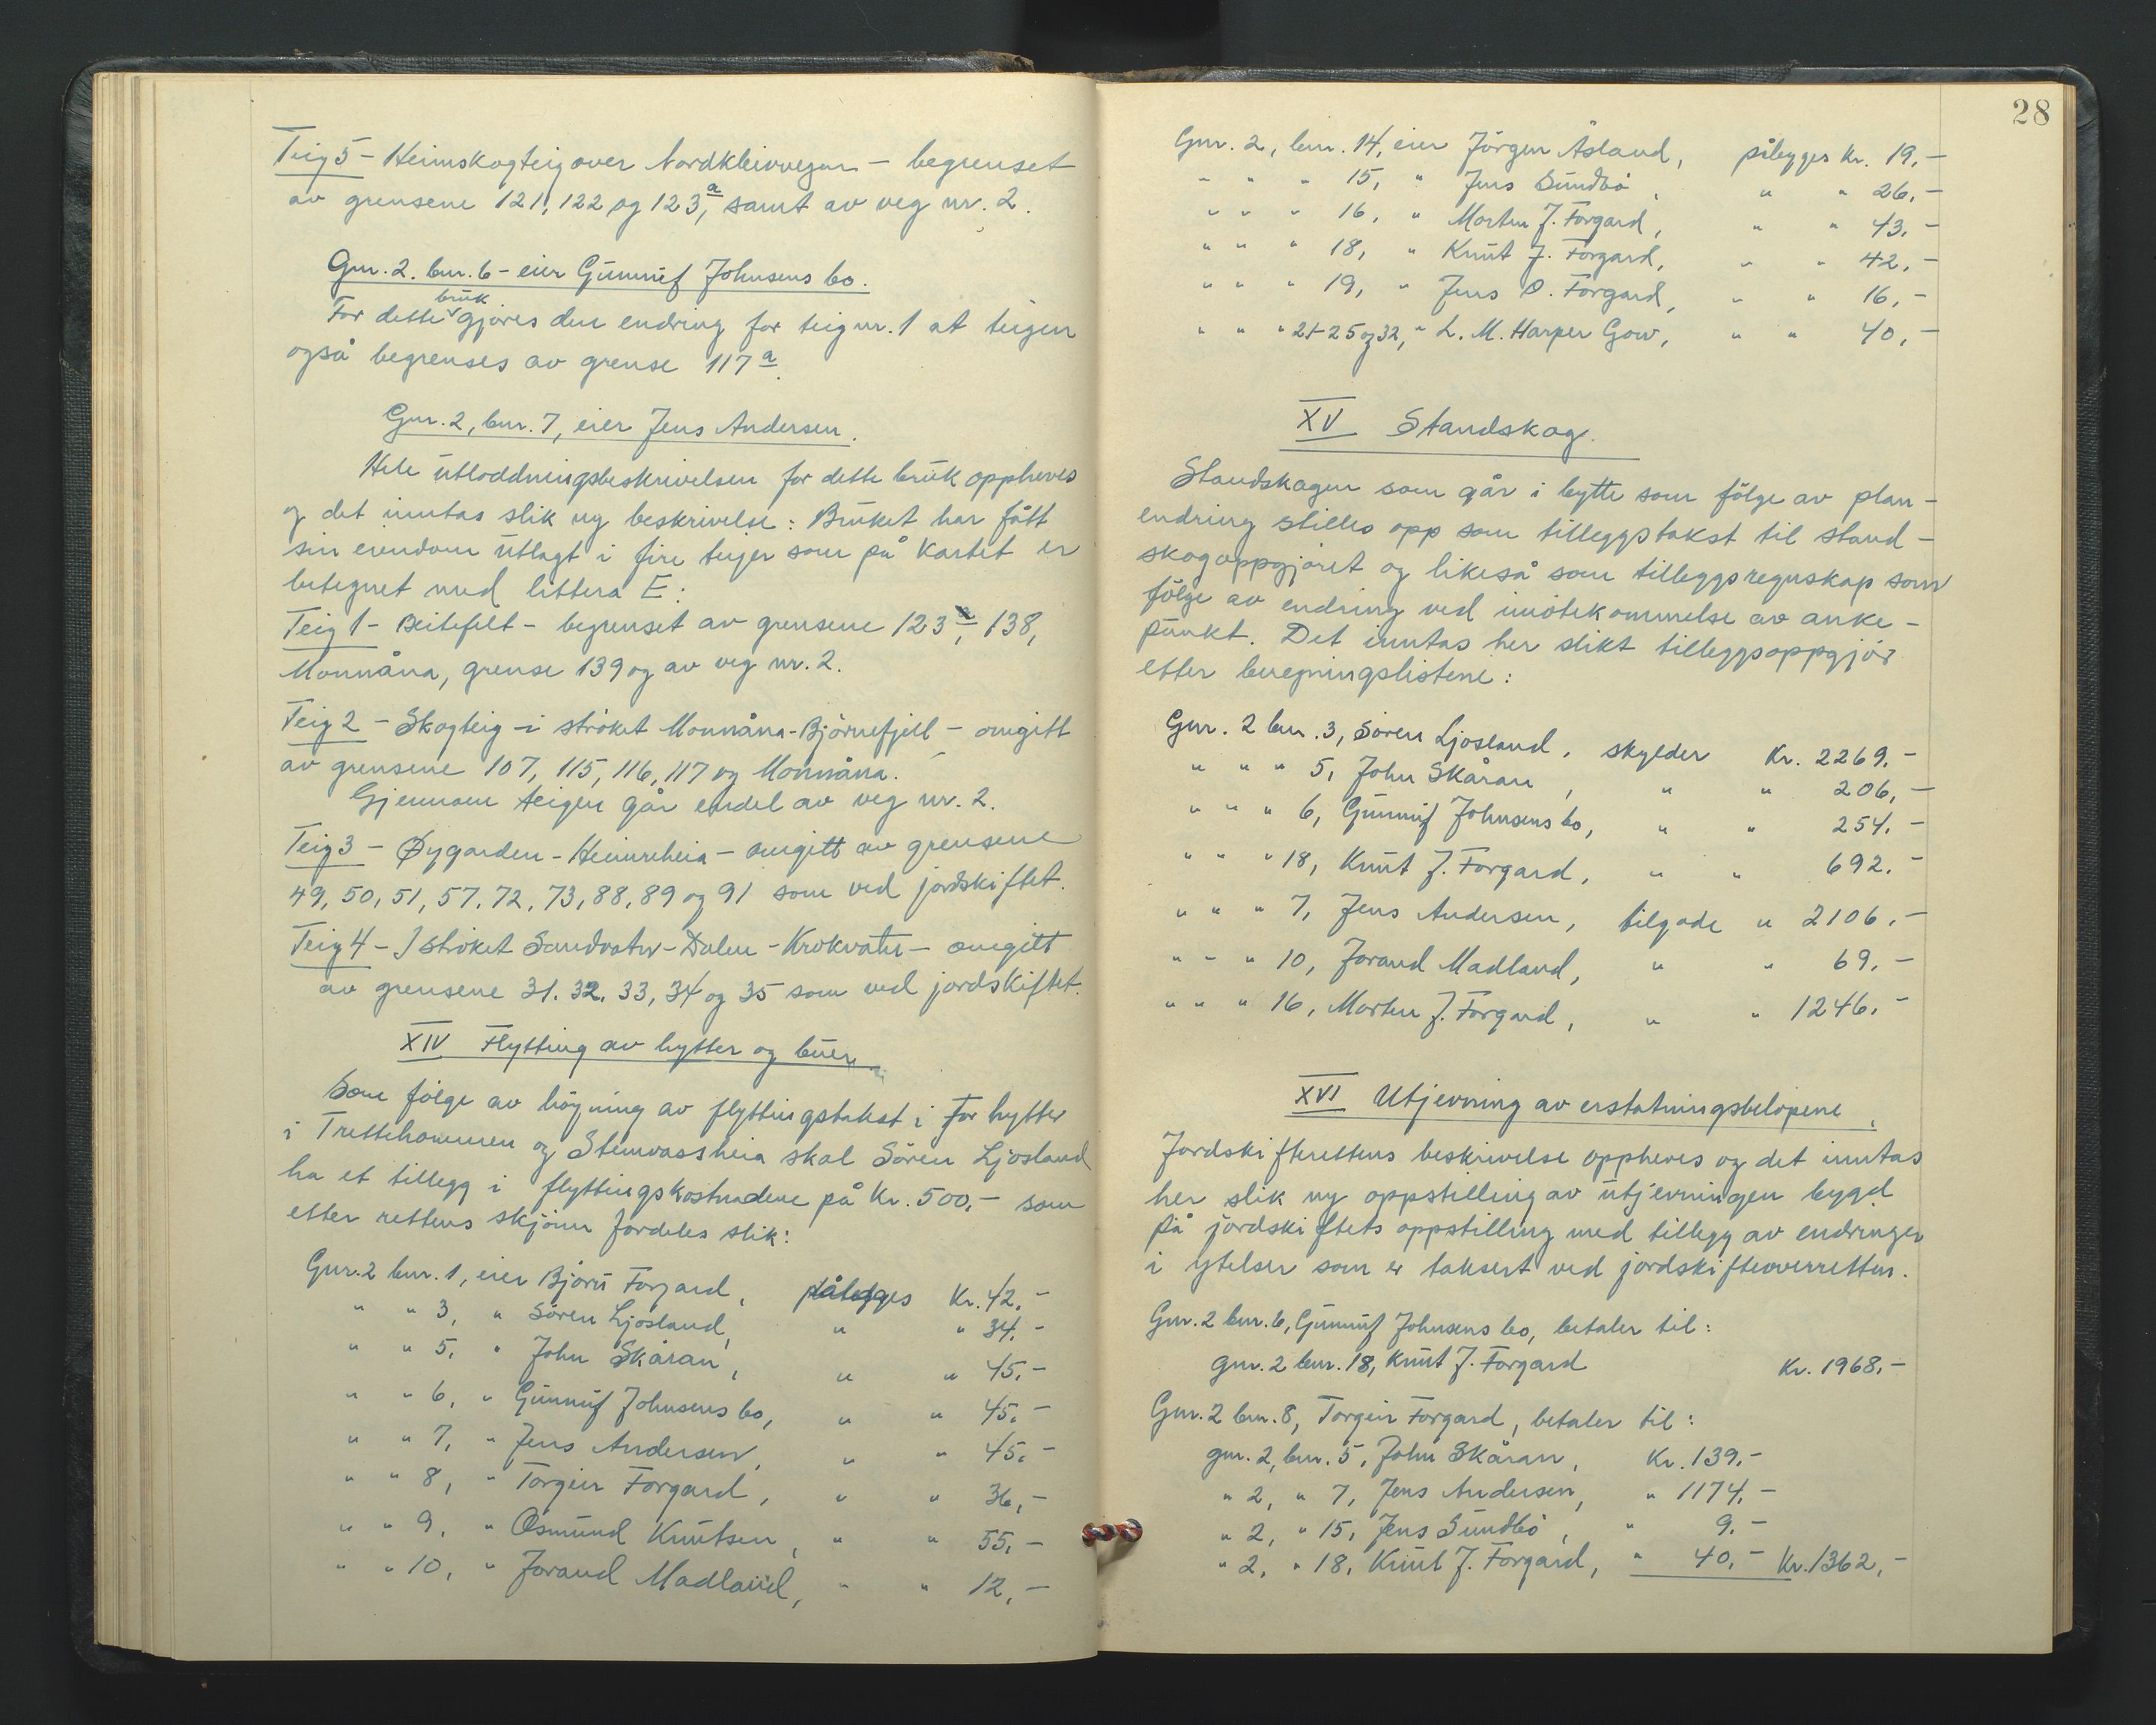 Teig 5 - Heimskogteig over Nordkleivvegen - begrenset
av grensene 121, 122 og 123a, samt av veg nr. 2.
Gnr. 2. bnr. 6 - eier Gunnuf Johnsens bo.
For dette bruk gjøres den endring for teig nr. 1 at teigen
også begrenses av grense 117a.
Gnr. 2, bnr. 7, eier Jens Andersen.
Hele utloddningsbeskrivelsen for dette bruk oppheves
og det inntas slik ny beskrivelse: Bruket har fått
sin eiendom utlagt i fire teiger som på kartet er
betegnet med littera E:
Teig 1 - Beitefelt - begrenset av grensene 123a, 138,
Monnåna, grense 139 og av veg nr. 2.
Teig 2 - Skogteig - i strøket Monnåna-Bjørnefjell - omgitt
av grensene 107, 115, 116, 117 og Monnåna.
Gjennom teigen går endel av veg nr. 2.
Teig 3 - Øygarden - Heimreheia - omgitt av grensene
49, 50, 51, 57, 72, 73, 88, 89 og 91 som ved jordskiftet.
Teig 4 - I strøket Sandvatn - Dalen - Krokvatn - omgitt
av grensene 31. 32. 33, 34 og 35 som ved jordskiftet.
XIV Flytting av hytter og buer.
Som følge av høyning av flyttingstakst i for hytter
i Trettehommen og Stemvassheia skal Sören Ljosland
ha et tillegg i flyttingskostnadene på Kr. 500,- som
etter rettens skjønn fordeles slik:
Gnr. 2 bnr. 1, eier Bjørn Forgard, pålegges Kr. 42,-
" " 3, " Sören Ljosland, " " 34,-
" " 5, " John Skåran, " " 45,-
" " 6, " Gunnuf Johnsens bo, " " 45,-
" " 7, " Jens Andersen, " " 45,-
" " 8, " Torgeir Forgard, " " 36,-
" " 9, " Osmund Knutsen, " " 55,-
" " 10, " Jorand Madland, " " 12,-
28
Gnr. 2, bnr. 14, eier Jörgen Åsland, pålegges kr. 19,-
" " " 15, " Jens Sundbö, " " 26,-
" " " 16, " Morten J. Forgard, " " 43,-
" " " 18, " Knut J. Forgard, " " 42,-
" " " 19, " Jens O. Forgard, " " 16,-
" " " 21-25 og 32, " L. M. Harper Gow, " " 40,-
XV Standskog.
Standskogen som går i bytte som følge av plan-
endring stilles opp som tilleggstakst til stand-
skogoppgjøret og likeså som tilleggsregnskap som
følge av endring ved imøtekommelse av anke-
punkt. Det inntas her slikt tilleggsoppgjør
etter beregningslistene:
Gnr. 2 bnr. 3, Sören Ljosland, skylder Kr. 2269,-
" " " 5, John Skåran, " " 206,-
" " " 6, Gunnuf Johnsens bo, " " 254,-
" " " 18, Knut J. Forgard, " " 692,-
" " " 7, Jens Andersen, tilgode " 2106,-
" " " 10, Jorand Madland, " " 69,-
" " " 16, Morten J. Forgard, " " 1246,-
XVI Utjevning av erstatningsbeløpene.
Jordskifterettens beskrivelse oppheves og det inntas
her slik ny oppstilling av utjevningen bygd
på jordskiftets oppstilling med tillegg av endringer
i ytelser som er taksert ved jordskifteoverretten.
Gnr. 2 bnr. 6, Gunnuf Johnsens bo, betaler til:
gnr. 2 bnr. 18, Knut J. Forgard Kr. 1968,-
Gnr. 2 bnr. 8, Torgeir Forgard, betaler til:
gnr. 2, bnr. 5, John Skåran, Kr. 139,-
" 2, " 7, Jens Andersen, " 1174,-
" 2, " 15, Jens Sundbö, " 9,-
" 2, " 18, Knut J. Forgard, " 40,- Kr. 1362,-